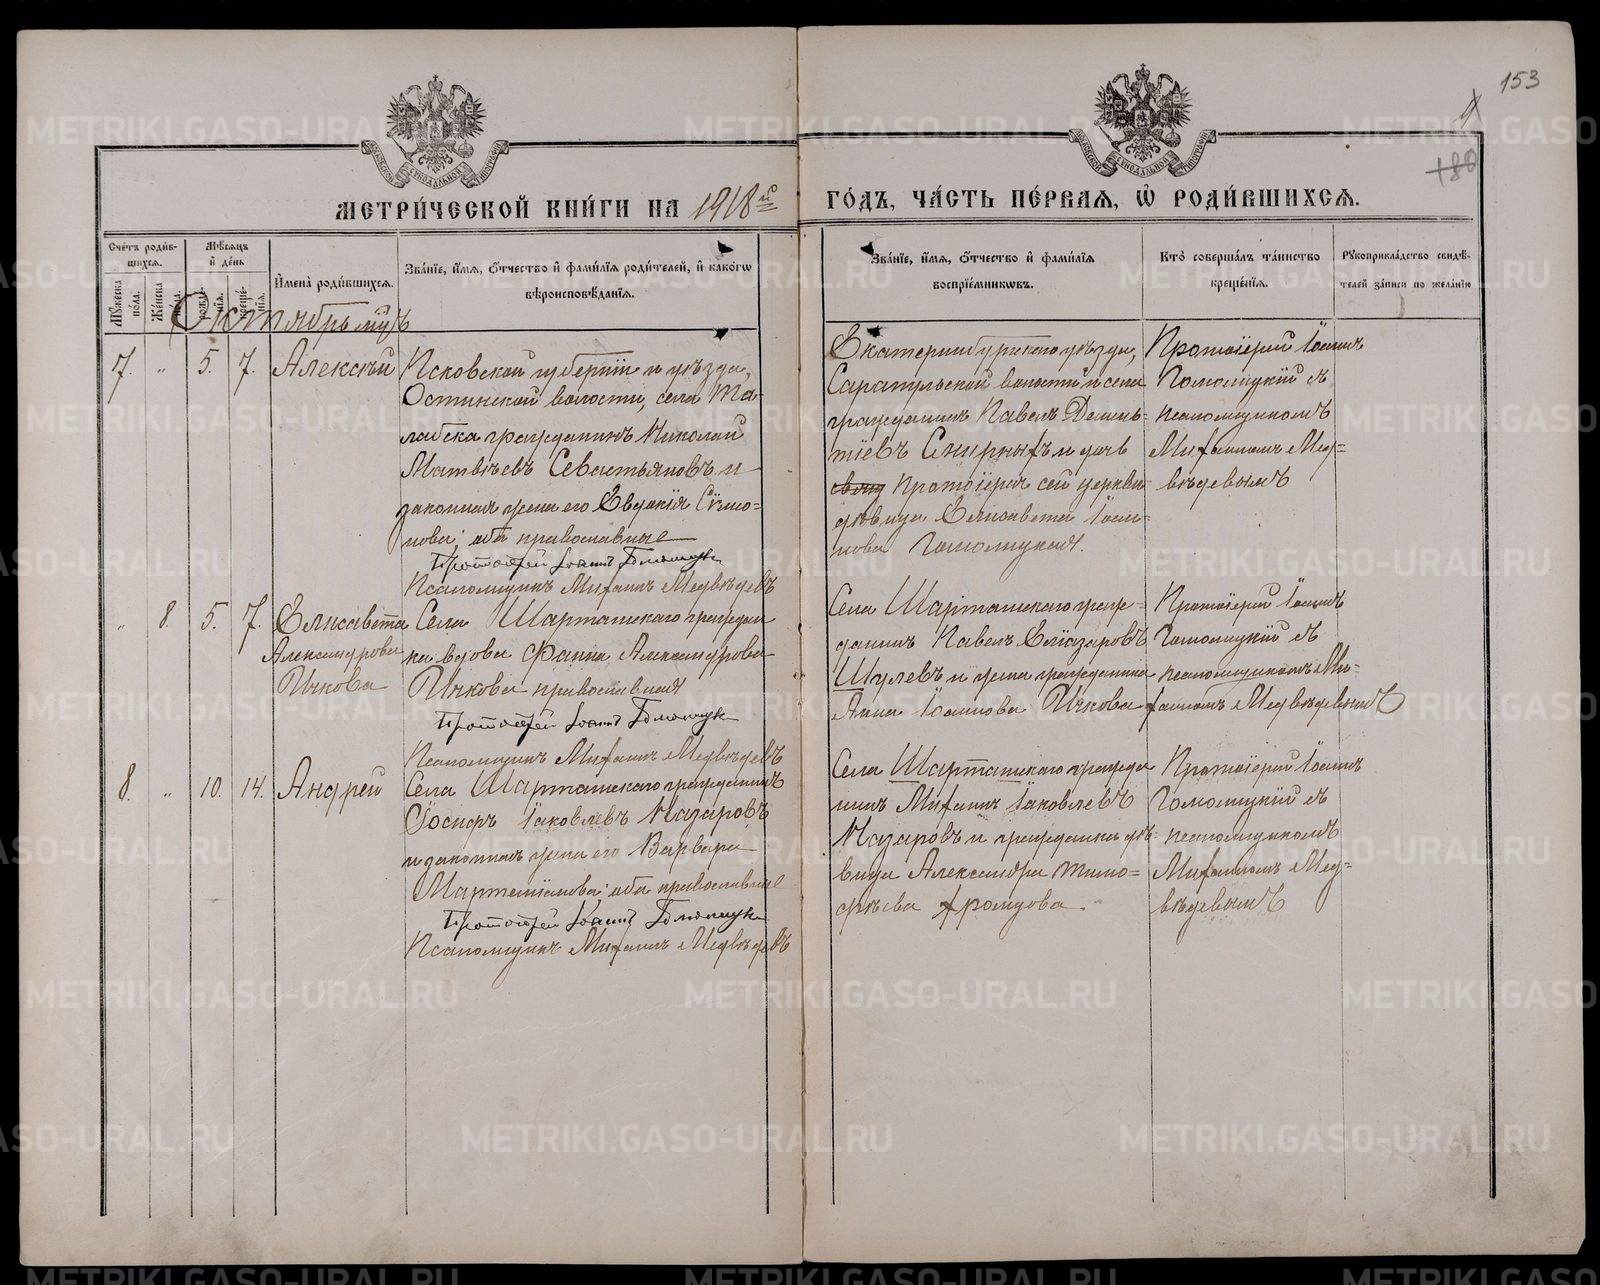 153
180
МЕТРИ́ЧЕСКОЙ КНИ́ГИ НА 1918й
ГО́ДЪ, ЧА́СТЬ ПЕ́РВАѦ, Ѡ҆ РОДИ́ВШИХСѦ.
Сче́тъ роди́в-
шихсѧ.
Мꙋ́жеска по́ла.
Же́нска по́ла.
Мѣ́сѧцъ и҆ де́нь
рожде́нїѧ.
креще́нїѧ.
И҆мена̀ роди́вшихсѧ.
Зва́нїе, и҆́мѧ, ѻ҆́тчество и҆ фами́лїѧ роди́телей, и҆ како́гѡ
вѣроисповѣ́данїѧ.
Зва́нїе, и҆́мѧ, ѻ҆́тчество и҆ фами́лїѧ
воспрїе́мникѡвъ.
Кто̀ соверша́лъ та́инство
креще́нїѧ.
Рꙋкоприкла́дство свидѣ́-
телей за́писи по жела́нїю
Октябрь мцъ
7. „ 5. 7. Алексѣй
Псковской губерніи и уѣзда,
Остинской волости, села Та-
лабска гражданинъ Николай
Матвѣевъ Севастьяновъ и
законная жена его Евдокія Сѵмо-
нова; оба православные
Протоіерей Іоаннъ
Псаломщикъ Мифаилъ Медвѣдевъ
Екатеринбургскаго уѣзда,
Сарапульской волости и села
гражданинъ Павелъ Демень-
тіевъ Смирныхъ и дочь
Протоіерея сей церкви
дѣвица Елисавета Іоан-
нова Гомолицкая.
Протоіерей Іоаннъ
Гомолицкій съ
псаломщикомъ
Михаиломъ Мед-
вѣдевымъ
„ 8. 5. 7. Елисавета
Александрова
Ичкова
Села Шарташскаго граждан
ка вдова Фаина Александрова
Ичкова православная
Протоіерей Іоаннъ
Псаломщикъ Михаилъ Медвѣдевъ
Села Шарташскаго граж-
данинъ Павелъ Еліазаровъ
Шулевъ и жена гражданина
Анна Іоаннова Ичкова
Протоіерей Іоаннъ
Гомолицкій съ
псаломщикомъ Ми-
хаиломъ Медвѣдевымъ
8. „ 10. 14. Андрей
Села Шарташскаго гражданинъ
Іосифъ Іаковлевъ Назаровъ
и законная жена его Варвара
Мартеміанова; оба православные
Протоіерей Іоаннъ
Псаломщикъ Михаилъ Медвѣдевъ
Села Шарташскаго гражда
нинъ Михаилъ Іаковлевъ
Назаровъ и гражданка дѣ-
вица Александра Тимо-
фѣева Хромцова.
Протоіерей Іоаннъ
Гомолицкій съ
псаломщикомъ
Михаиломъ Мед-
вѣдевымъ